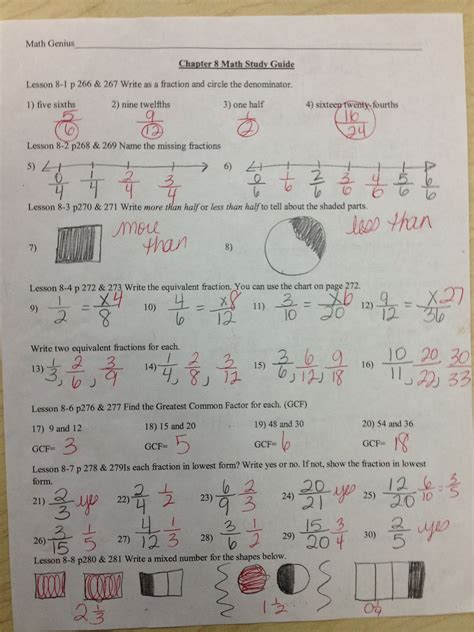 Math Genius
Chapter 8 Math Study Guide
Lesson 8-1 p 266 & 267 Write as a fraction and circle the denominator.
1) five sixths 2) nine twelfths 3) one half 4) sixteen twenty-fourths
5/6 9/12 1/2 16/24
Lesson 8-2 p268 & 269 Name the missing fractions
5) 0/4 1/4 2/4 3/4 6) 0/6 1/6 2/6 3/6 4/6 5/6 6/6
Lesson 8-3 p270 & 271 Write more than half or less than half to tell about the shaded parts.
7) more than 8) less than
Lesson 8-4 p 272 & 273 Write the equivalent fraction. You can use the chart on page 272.
9) 1/2 = x4/8 10) 4/6 = x8/12 11) 3/10 = x6/20 12) 9/12 = x27/36
Write two equivalent fractions for each.
13) 1/3, 2/6, 3/9 14) 1/4, 2/8, 3/12 15) 3/6, 6/12, 9/18 16) 10/11, 20/22, 30/33
Lesson 8-6 p276 & 277 Find the Greatest Common Factor for each. (GCF)
17) 9 and 12 18) 15 and 20 19) 48 and 30 20) 54 and 36
GCF= 3 GCF= 5 GCF= 6 GCF= 18
Lesson 8-7 p 278 & 279Is each fraction in lowest form? Write yes or no. If not, show the fraction in lowest
form.
21) 2/3 yes 22) 2/4 1/2 23) 6/9 2/3 24) 20/21 yes 25) 12/20 6/10 = 3/5
26) 3/15 1/5 27) 4/12 1/3 28) 3/6 1/2 29) 15/20 3/4 30) 2/5 yes
Lesson 8-8 p280 & 281 Write a mixed number for the shapes below.
2 1/3 1 1/2